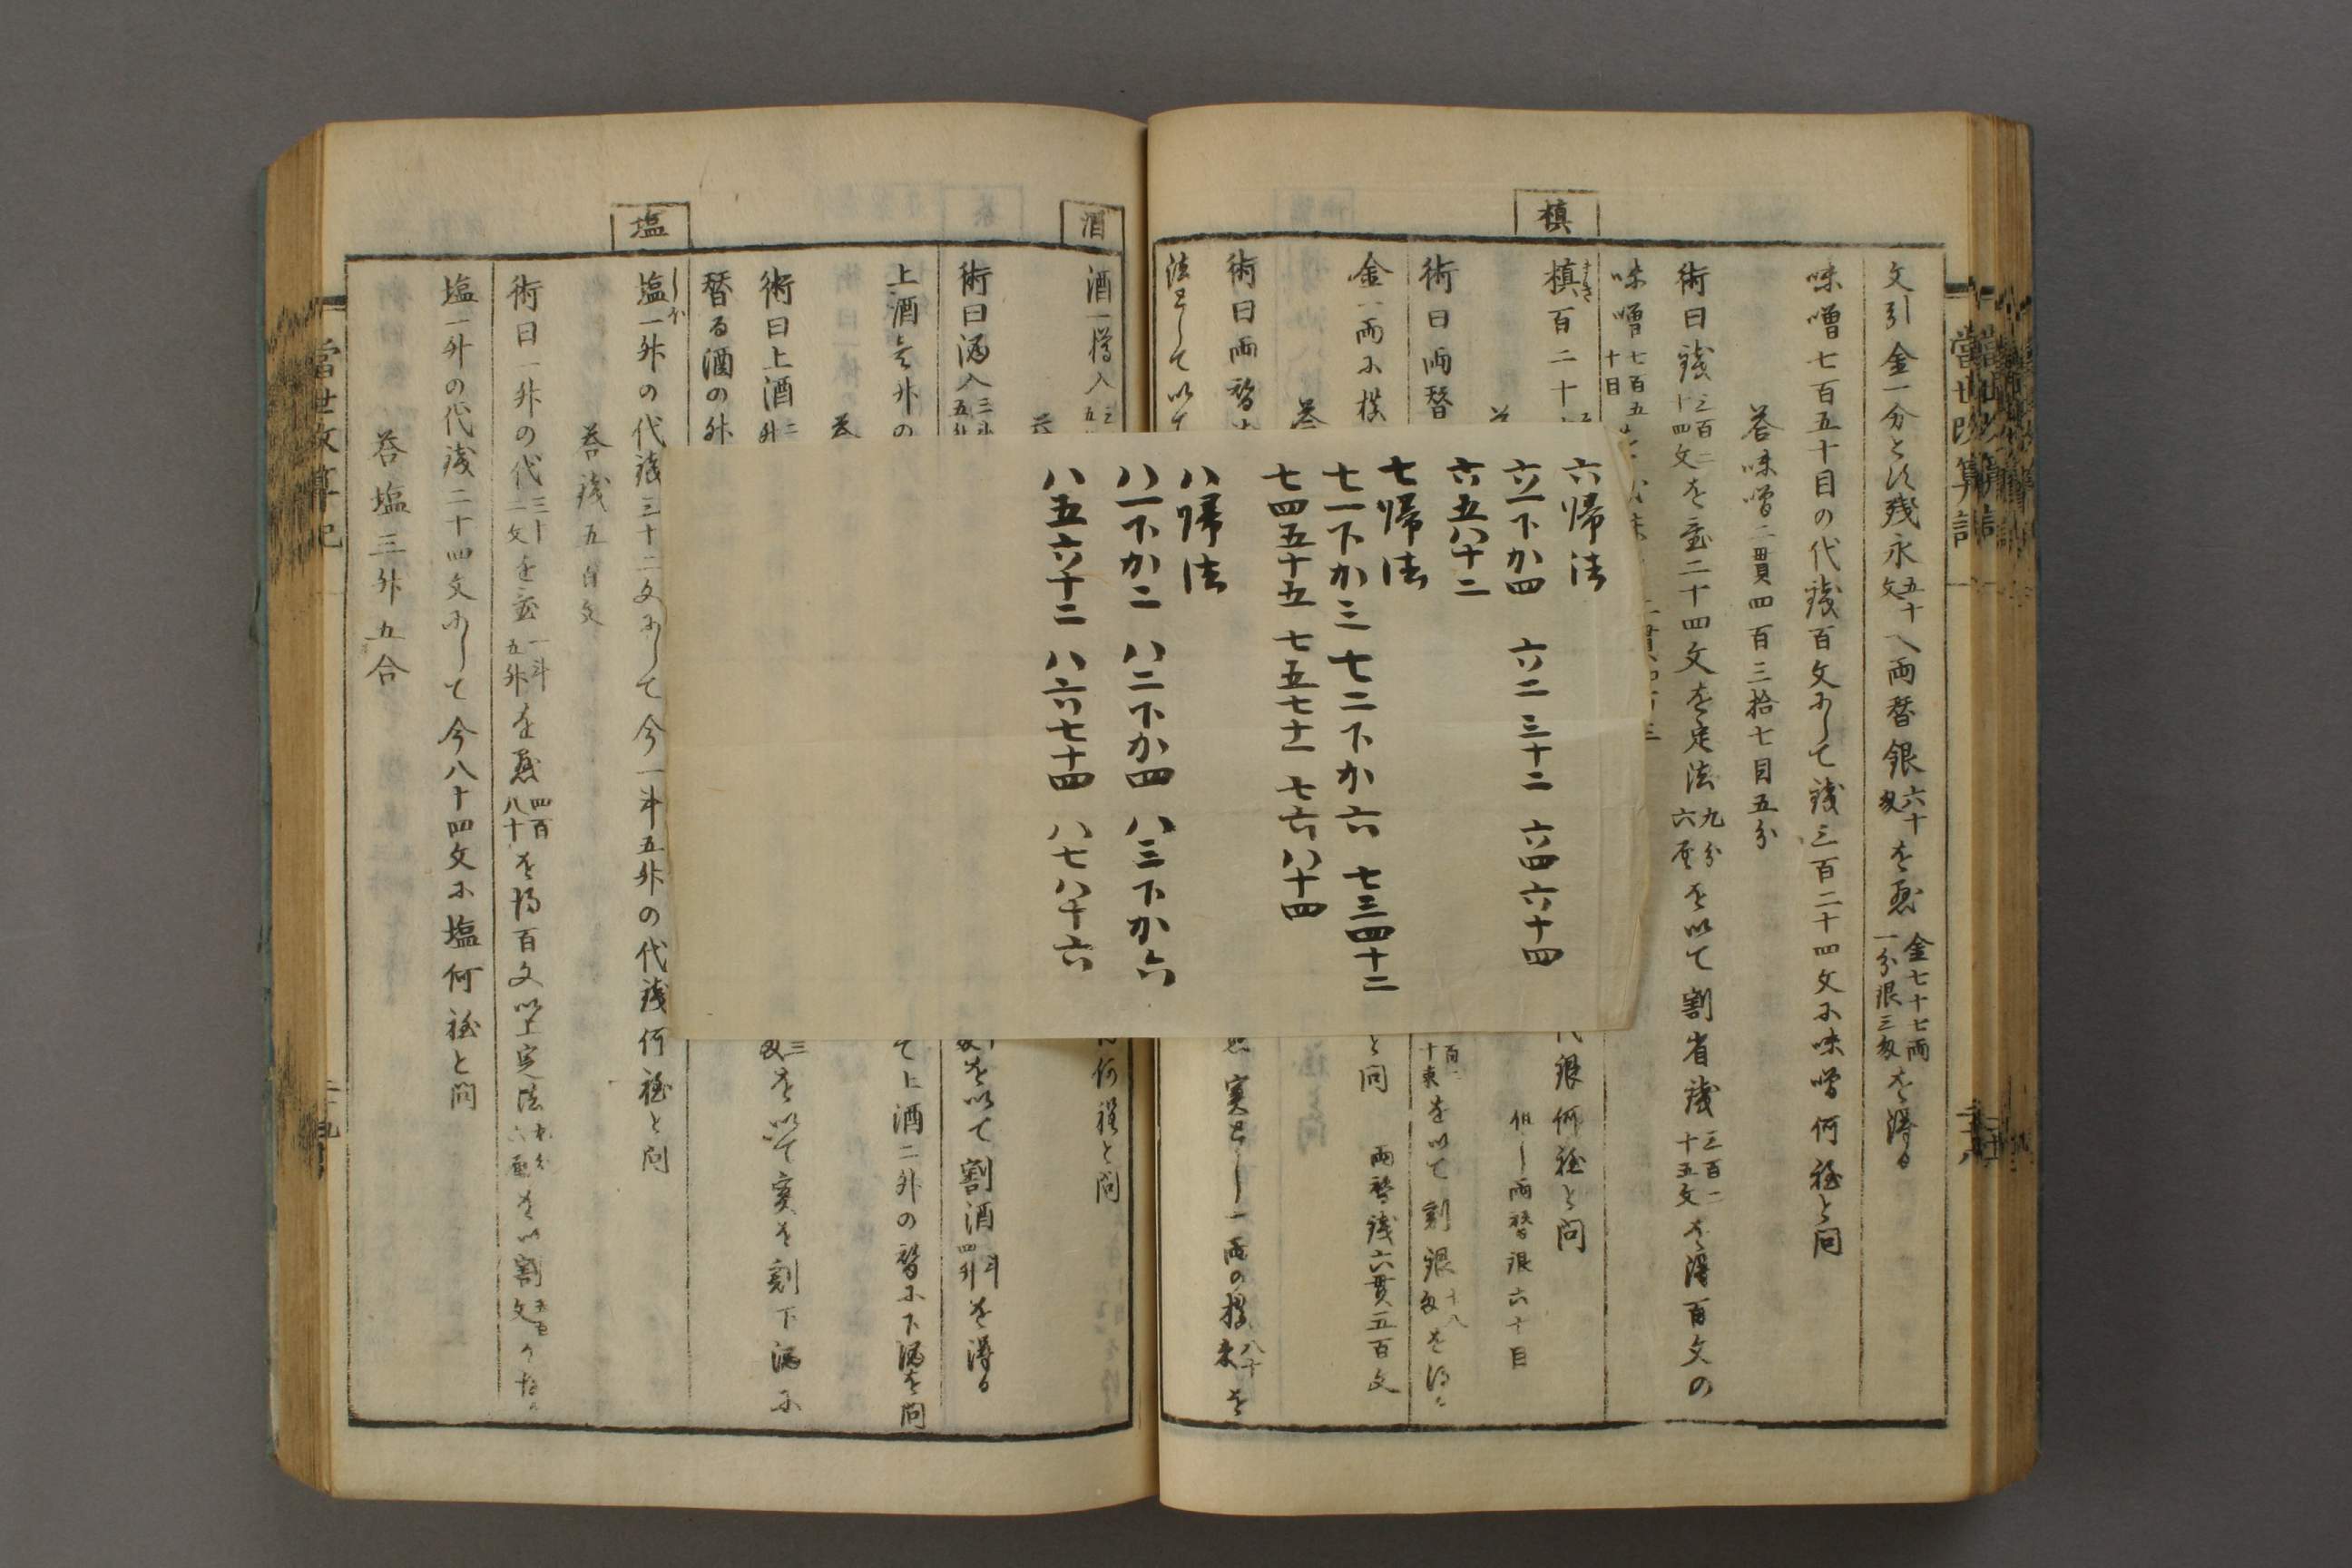 槙
文引金一分と永残永五十文へ両替銀六十匁を乗金七十七両一分銀三匁を得る
味噌七百五十目の代銭百文にして銭三百二十四文に味噌何程と問
答味噌二貫四百三拾七目五分
術曰銭三百二十四文を置二十四文を定法九分六厘を以て割省銭三百二十五文を得百文の
味噌七百五十目を
槙百二十
代銀何程と問
但し両替銀六十目
術曰両替
百二十束を以て割銀十八匁を得る
金一両に槙
と問 両替銭六貫五百文
答
術曰両替
実とし一両の槙八十束を
法として以て
六帰法
六一下か四 六二三十二 六四六十四
六五八十二
七帰法
七一下か三 七二下か六 七三四十二
七四五十五 七五七十一 七六八十四
八帰法
八一下か二 八二下か四 八三下か六
八五六十二 八六七十四 八七八十六
酒
塩
酒一樽入
何程と問
答
術曰酒入三斗五升
匁を以て割酒四升を得る
上酒壱升の
て上酒二升の替に下酒を問
答
術曰上酒二升
三匁を以て実を割下酒に
替る酒の升
塩一升の代銭三十二文にして今一斗五升の代銭何程と問
答銭五百文
術曰一升の代三十二文を置一斗五升を乗四百八十を得百文以上定法九分六厘を以割五百文
塩一升の代銭二十四文にして今八十四文に塩何程と問
答塩三升五合
當世改算記
二十九